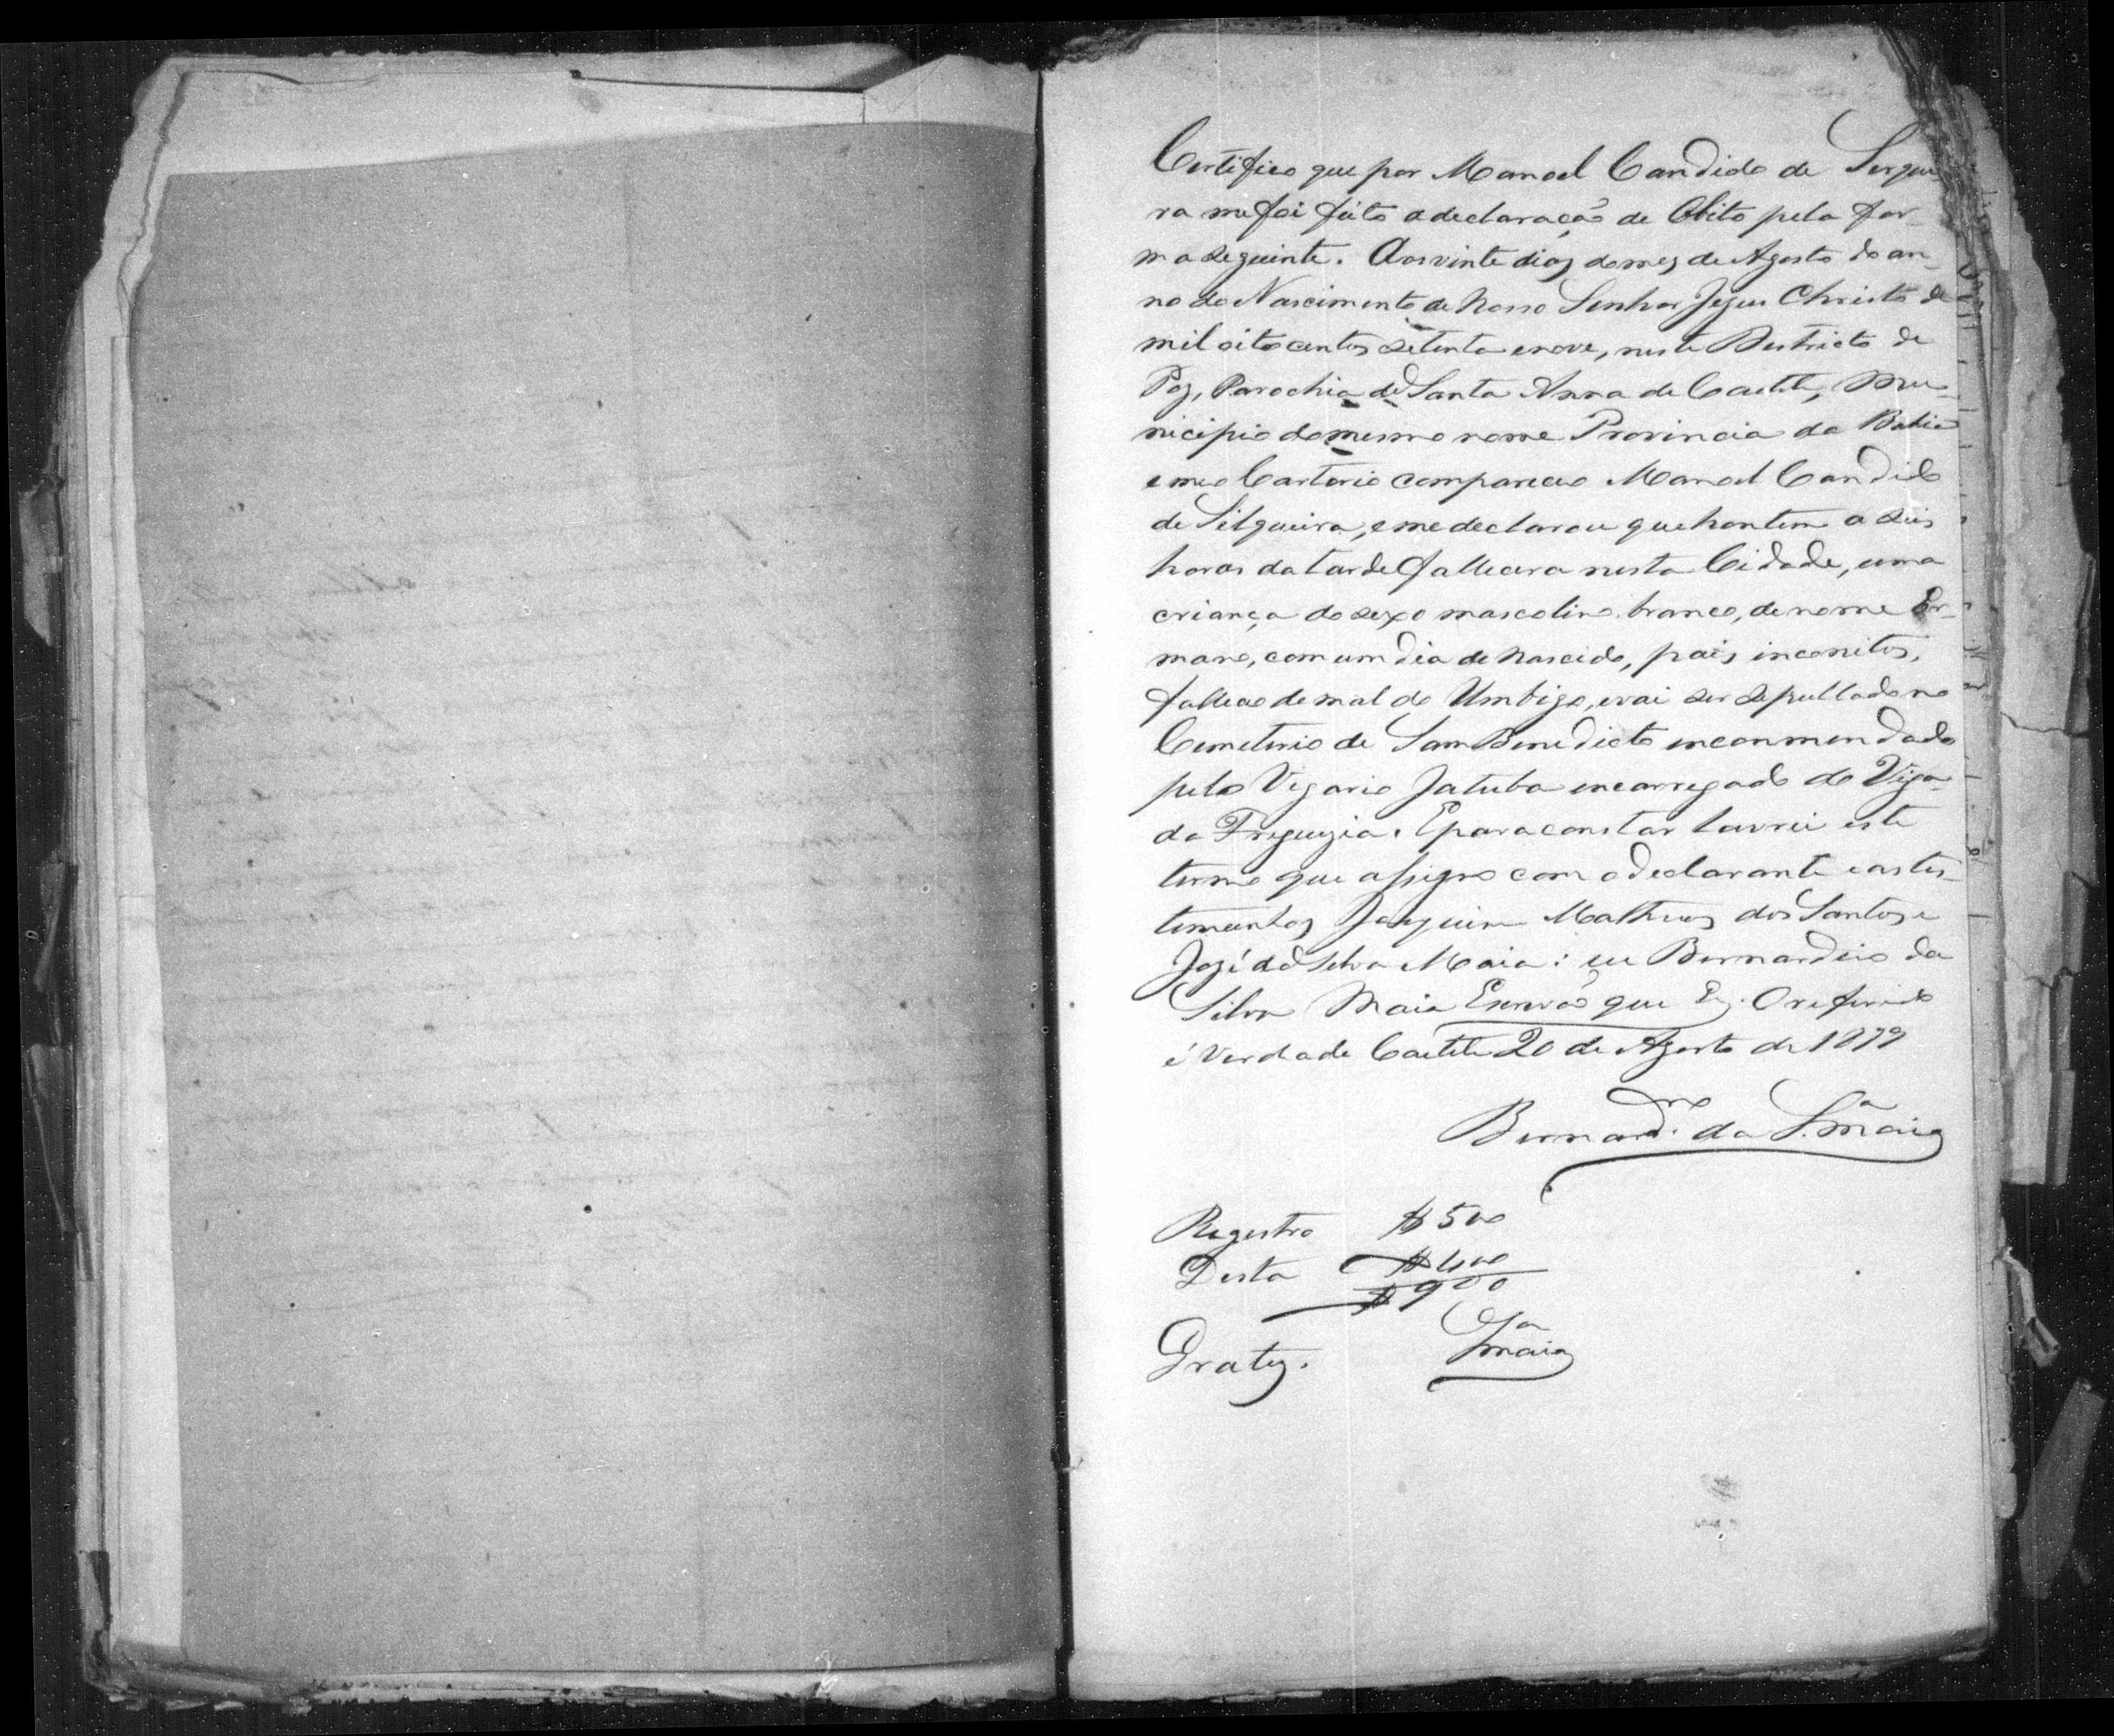 Certifico que por Manoel Candido de Serquei
ra me foi feito a declaração de Obito pela for-
ma seguinte. Aos vinte dias do mez de Agosto do an-
no do Nascimento de Nosso Senhor Jezus Christo de
mil oito centos setenta e nove, neste Destricto de
Paz, Parochia de Santa Anna de Caetité, Mu-
nicipio do mesmo nome Provincia da Bahia
e meo Cartorio compareceo Manoel Candido
de Silqueira, e me declarou que hontem a seis
horas da tarde fallecera nesta Cidade, uma
criança do sexo mascolino branco, de nome Er-
mano, com um dia de nascido, pais inconitos,
falleceo de mal do Umbigo, e vai ser sepultado no
Cemeterio de Sam Benedicto enconmendado
pelo Vigario Jatuba encarregado do Viga-
da Freguezia. E para constar lavrei este
termo que assigno com o declarante e as tes-
temunhas Joaquim Matheus dos Santos e
José da Silva Maia: eu Bernardino da
Silva Maia Escrivão que Es. O referido
é Verdade Caetité 20 de Agosto de 1879
Bernard.no da S.a Maia
Registro $500
Desta $400
$900
Gratis. S.a Maia